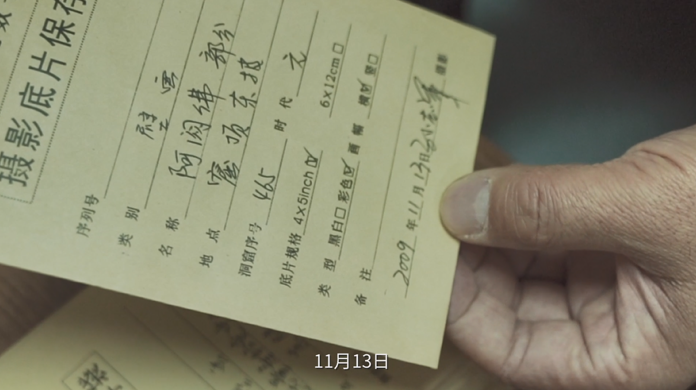 摄影底片保存
序列号
类别 壁画
名称 阿閦佛 部分
地点 窟顶东披
洞窟序号 465 时代 元
底片规格 4×5inch☑ 6×12cm□
类型 黑白□ 彩色☑ 画幅 横☑ 竖□
备注
2009年11月13日 摄影
11月13日